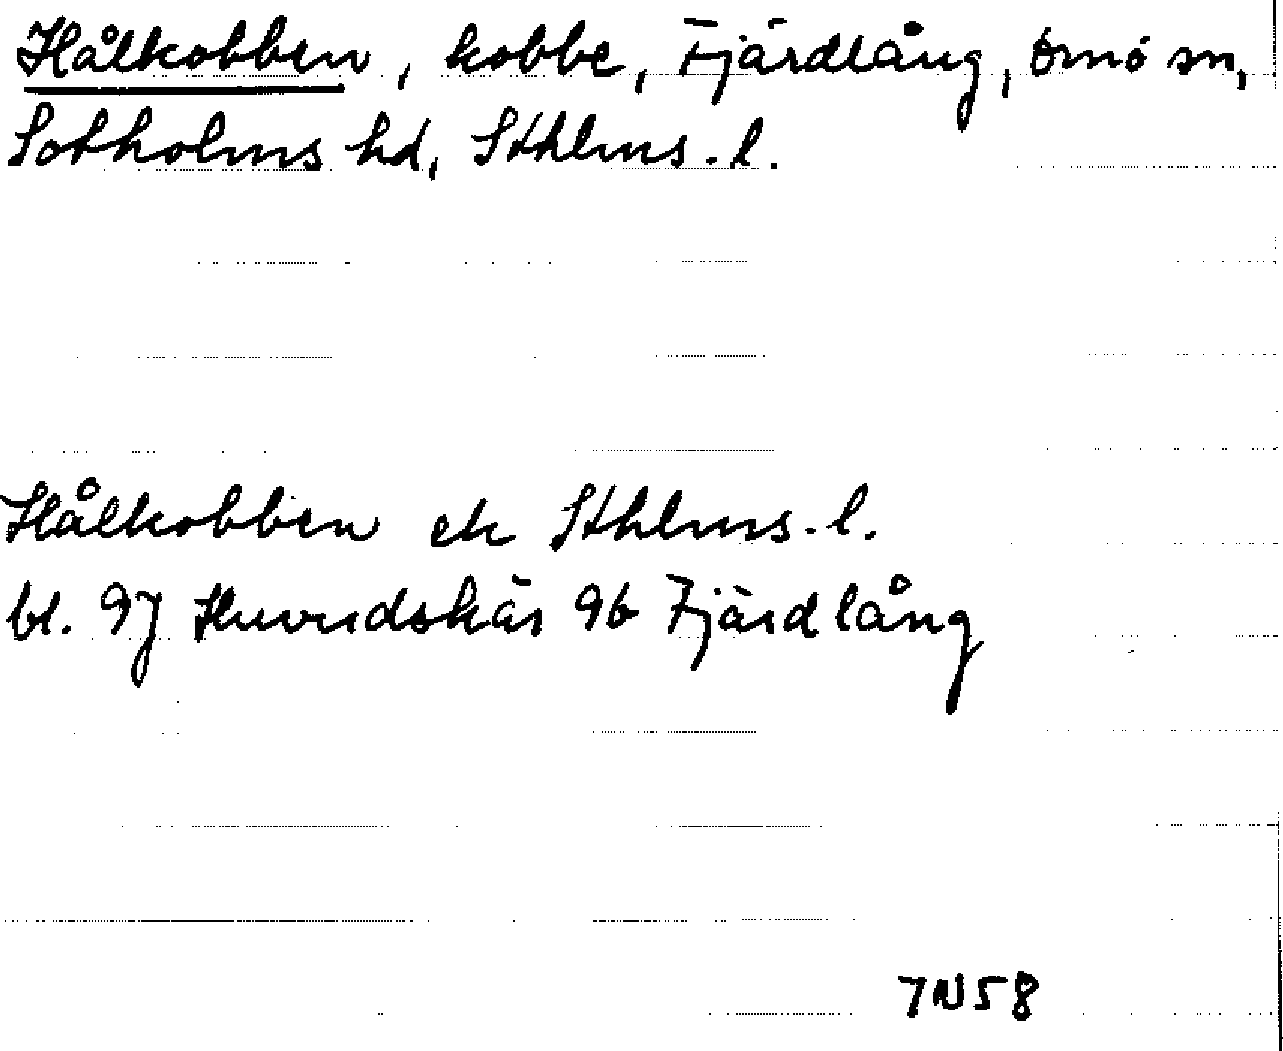 Hålkobben, kobbe, Fjärdlång, Ornö sn,
Sotholms hd, Sthlms. l.
Hålkobben ek Sthlms. l.
bl. 97 Huvudskär 96 Fjärdlång
7N58